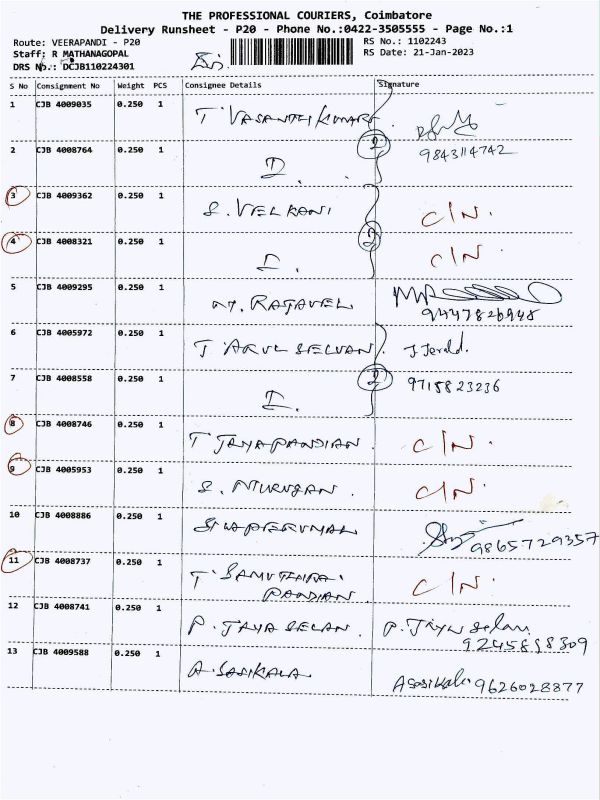 THE PROFESSIONAL COURIERS, Coimbatore
Delivery Runsheet - P20 - Phone No.:0422-3505555 - Page No.:1
Route: VEERAPANDI - P20 RS No.: 1102243
Staff: R MATHANAGOPAL RS Date: 21-Jan-2023
DRS No.: DCJB110224301
S No Consignment No Weight PCS Consignee Details Signature
1 CJB 4009035 0.250 1 T VASANTHKUMAR
2 CJB 4008764 0.250 1 D. 2 9843114742
3 CJB 4009362 0.250 1 S. VELKANI C/N.
4 CJB 4008321 0.250 1 D. 2 C/N.
5 CJB 4009295 0.250 1 M. RAJAVEL
9447826948
6 CJB 4005972 0.250 1 T ARUL SELVAN. J Jerald.
7 CJB 4008558 0.250 1 D. 2 9715823236
8 CJB 4008746 0.250 1 T JAYAPANDIAN. C/N.
9 CJB 4005953 0.250 1 S. MURUGAN. C/N.
10 CJB 4008886 0.250 1 SIVAPERUMAL 9865729357
11 CJB 4008737 0.250 1 T SAMUTHIRA. C/N.
PANDIAN
12 CJB 4008741 0.250 1 P. JAYA SELAN. P. Jeya Selan.
9245898309
13 CJB 4009588 0.250 1 A. SASIKALA A Sasikala 9626028877